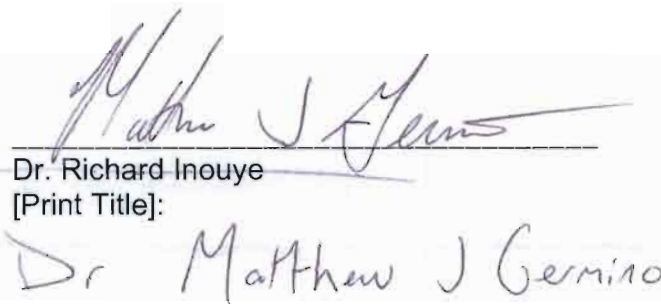 Matthew J Germino
Dr. Richard Inouye
[Print Title]:
Dr Matthew J Germino